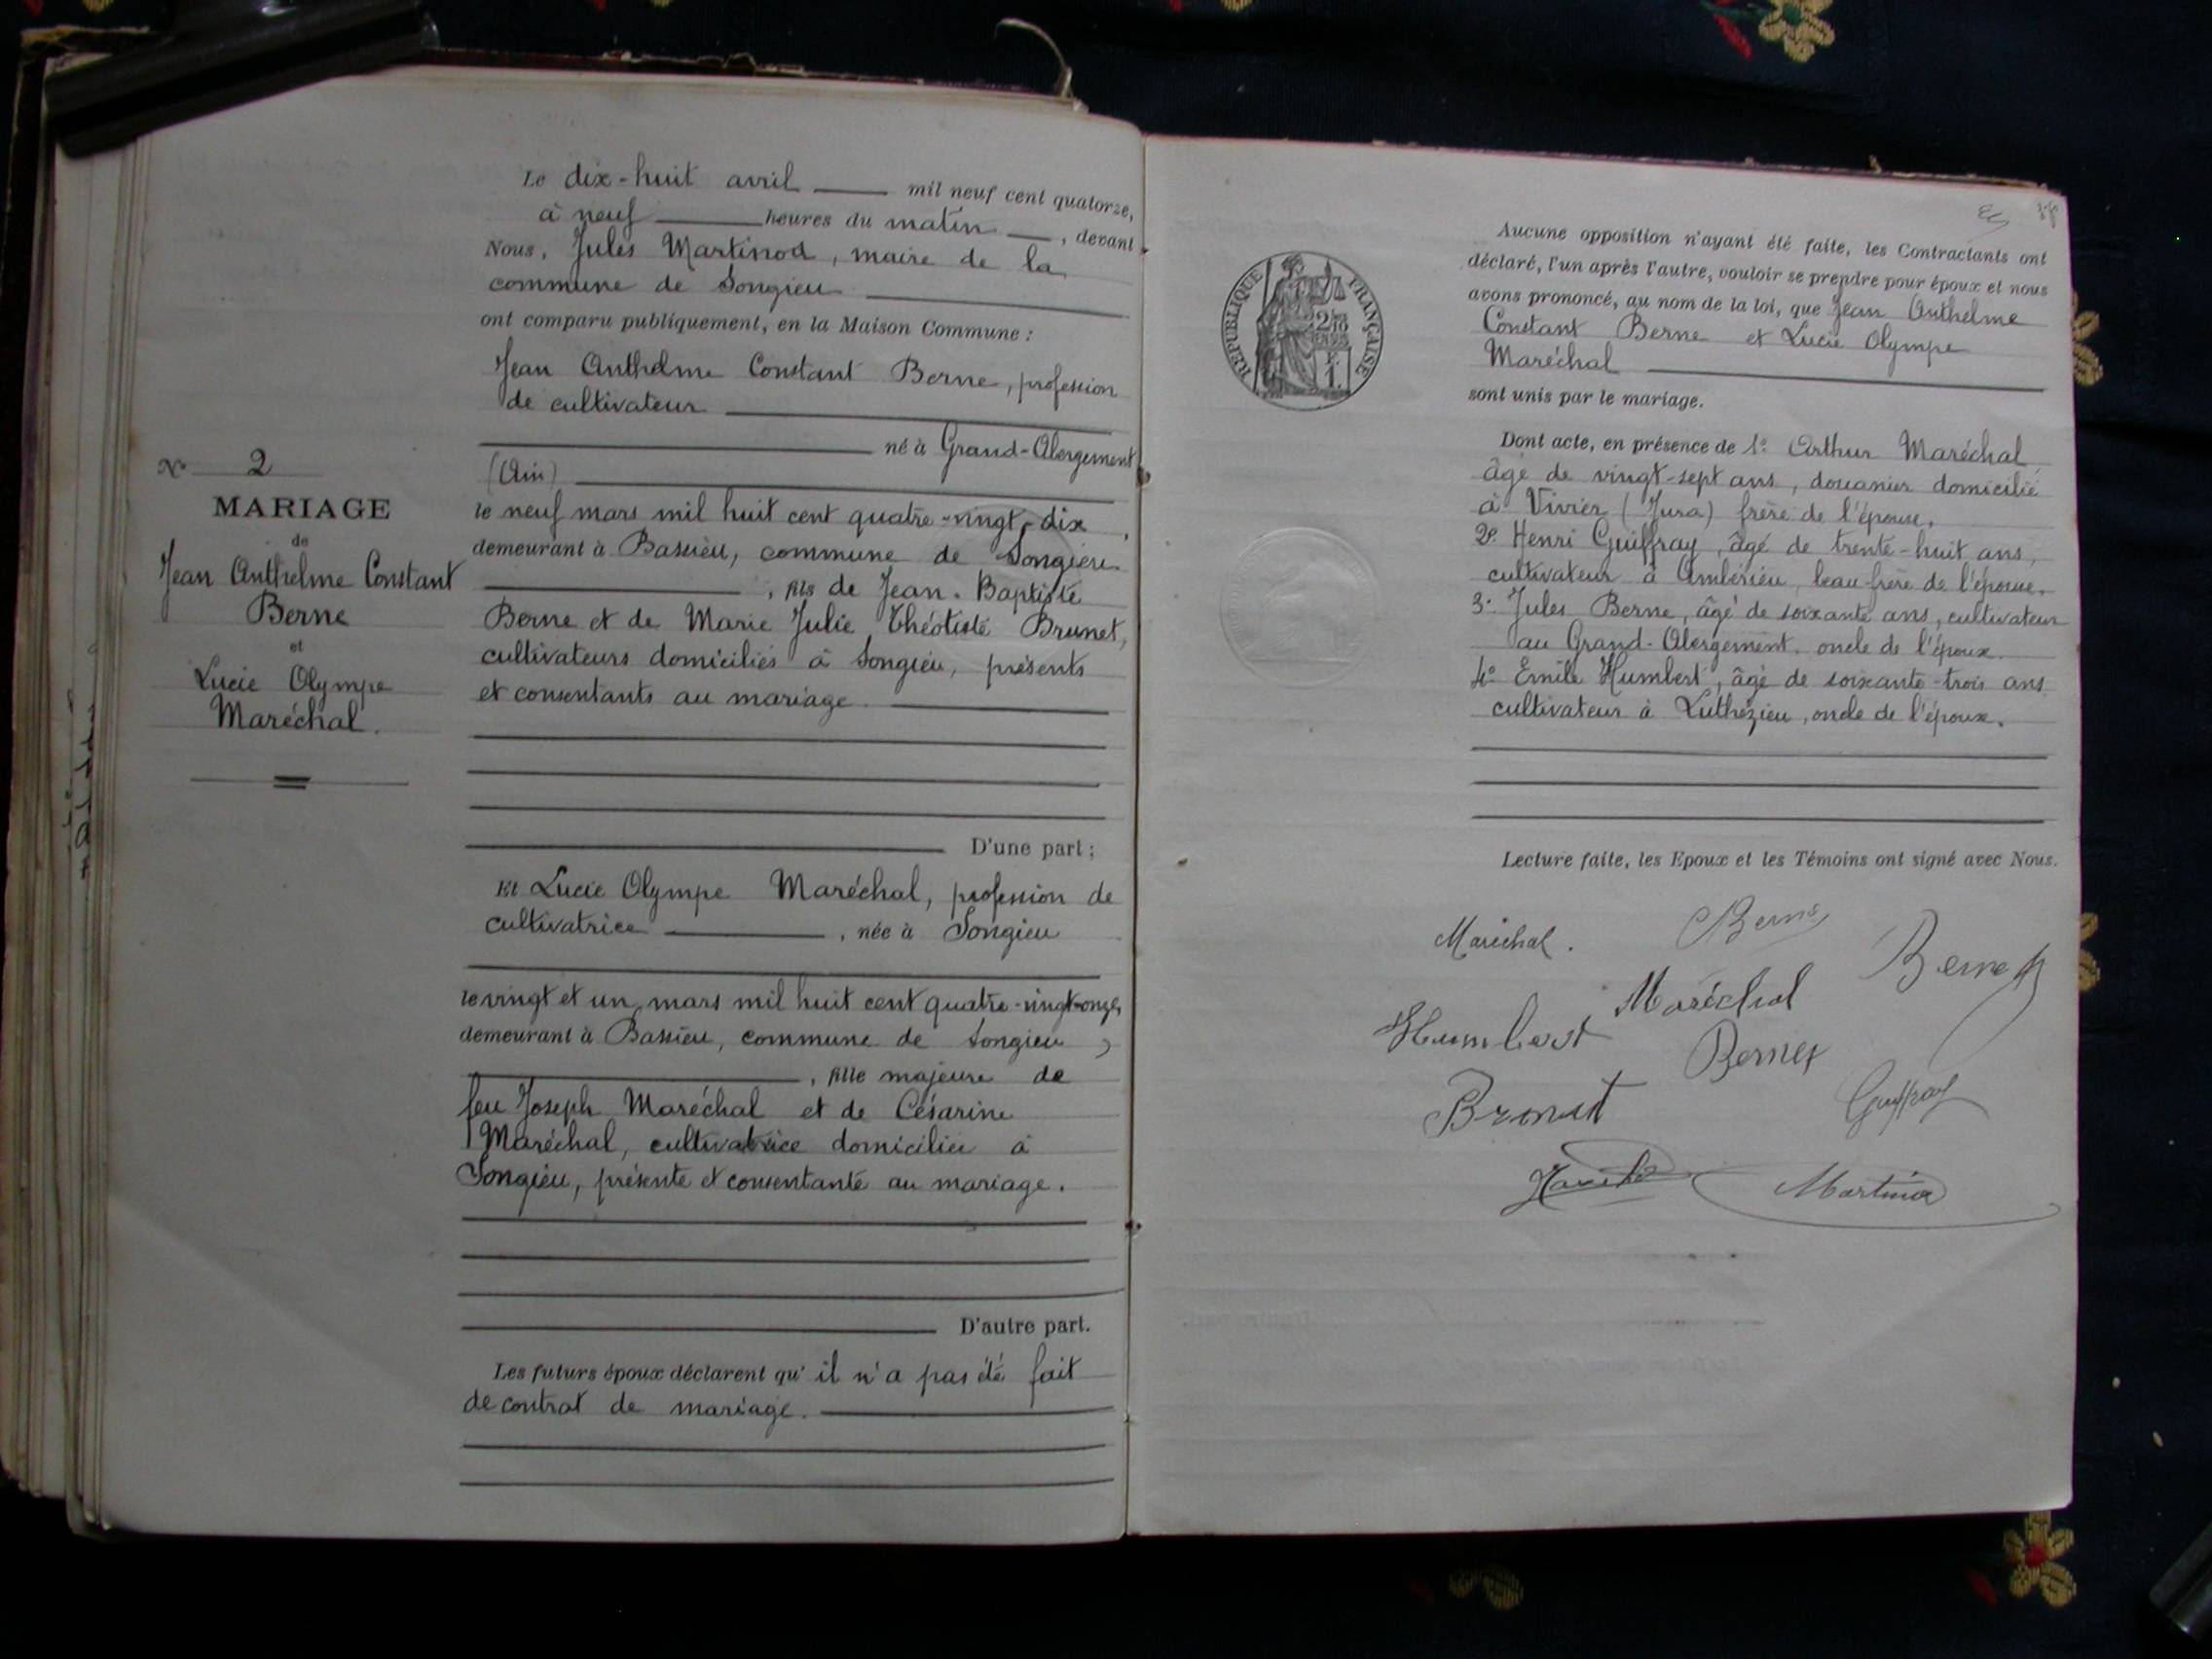 Le dix-huit avril mil neuf cent quatorze,
à neuf heures du matin, devant
Nous, Jules Martinod, maire de la
commune de Songieu
ont comparu publiquement, en la Maison Commune :
Jean Anthelme Constant Berne, profession
de cultivateur
né à Grand-Abergement
(Ain)
le neuf mars mil huit cent quatre-vingt-dix,
demeurant à Bassieu, commune de Songieu
, fils de Jean-Baptiste
Berne et de Marie Julie Théotiste Brunet,
cultivateurs domiciliés à Songieu, présents
et consentants au mariage.
D'une part ;
Et Lucie Olympe Maréchal, profession de
cultivatrice, née à Songieu
le vingt et un mars mil huit cent quatre-vingt-onze,
demeurant à Bassieu, commune de Songieu,
, fille majeure de
feu Joseph Maréchal et de Césarine
Maréchal, cultivatrice domiciliée à
Songieu, présente et consentante au mariage.
D'autre part.
Les futurs époux déclarent qu'il n'a pas été fait
de contrat de mariage.
N° 2
MARIAGE
de
Jean Anthelme Constant
Berne
et
Lucie Olympe
Maréchal.
RÉPUBLIQUE FRANÇAISE
Aucune opposition n'ayant été faite, les Contractants ont
déclaré, l'un après l'autre, vouloir se prendre pour époux et nous
avons prononcé, au nom de la loi, que Jean Anthelme
Constant Berne et Lucie Olympe
Maréchal
sont unis par le mariage.
Dont acte, en présence de 1° Arthur Maréchal
âgé de vingt-sept ans, douanier domicilié
à Vivier (Jura) frère de l'épouse.
2° Henri Guiffray, âgé de trente-huit ans,
cultivateur à Ambérieu, beau-frère de l'épouse.
3° Jules Berne, âgé de soixante ans, cultivateur
au Grand-Abergement, oncle de l'époux.
4° Emile Humbert, âgé de soixante-trois ans
cultivateur à Luthézieu, oncle de l'époux.
Lecture faite, les Epoux et les Témoins ont signé avec Nous.
Maréchal.
Berne
Berne
Maréchal
Humbert
Berne
Brunet
Guiffray
Martinod